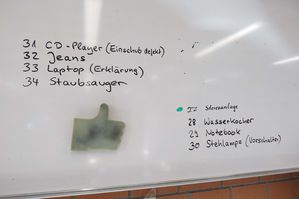 31 CD-Player (Einschub defekt)
32 Jeans
33 Laptop (Erklärung)
34 Staubsauger
27 Stereoanlage
28 Wasserkocher
29 Notebook
30 Stehlampe (Vorschalter)